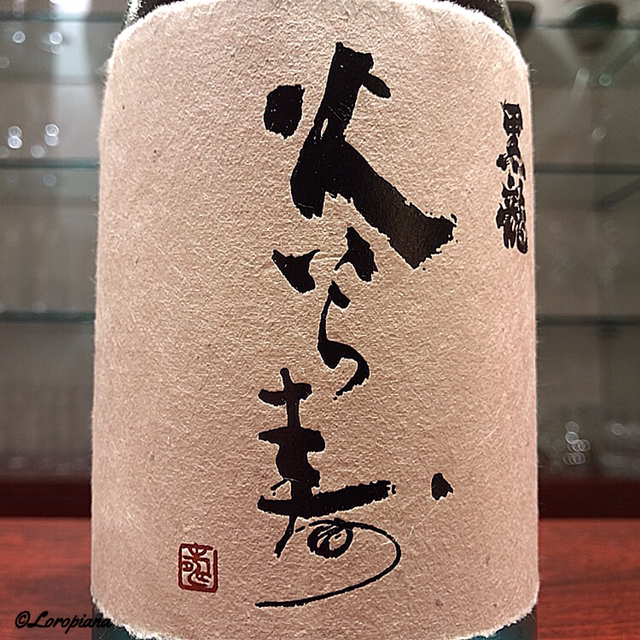 黒龍
火いら寿
©Loropiana